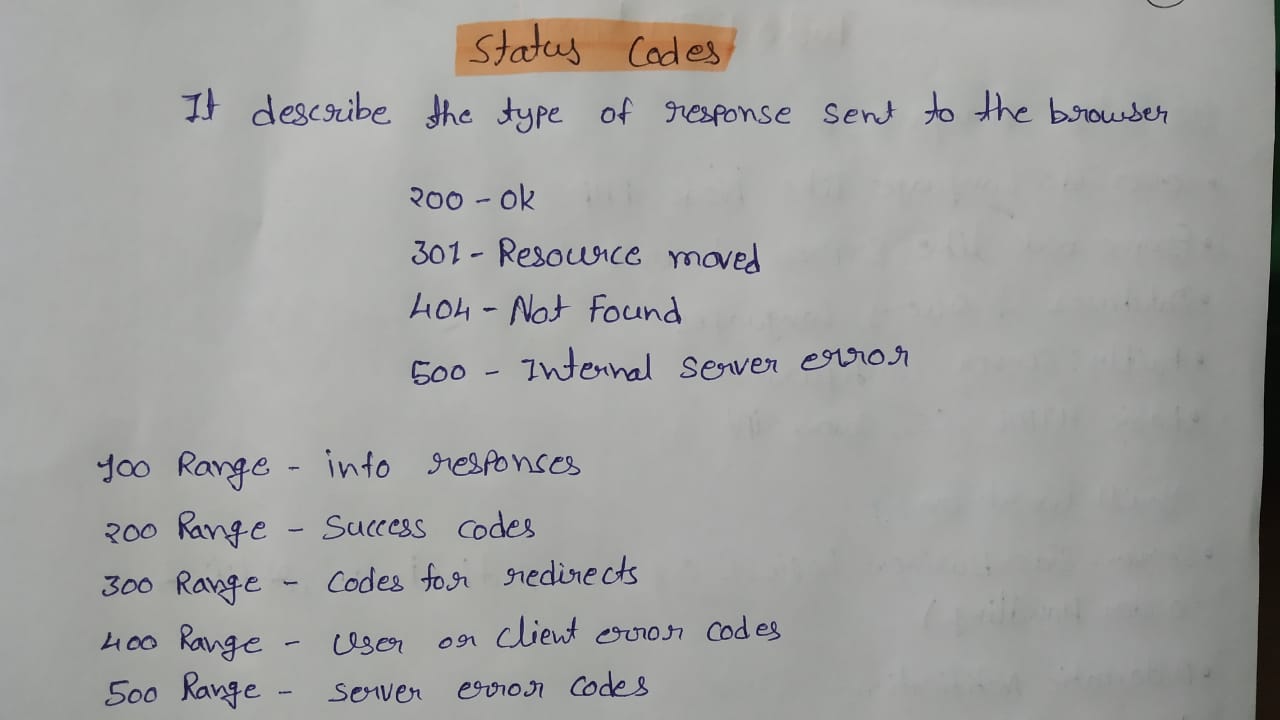 Status Codes
It describe the type of response sent to the browser
200 - Ok
301 - Resource moved
404 - Not Found
500 - Internal Server error
100 Range - info responses
200 Range - Success codes
300 Range - Codes for redirects
400 Range - User or Client error codes
500 Range - Server error codes